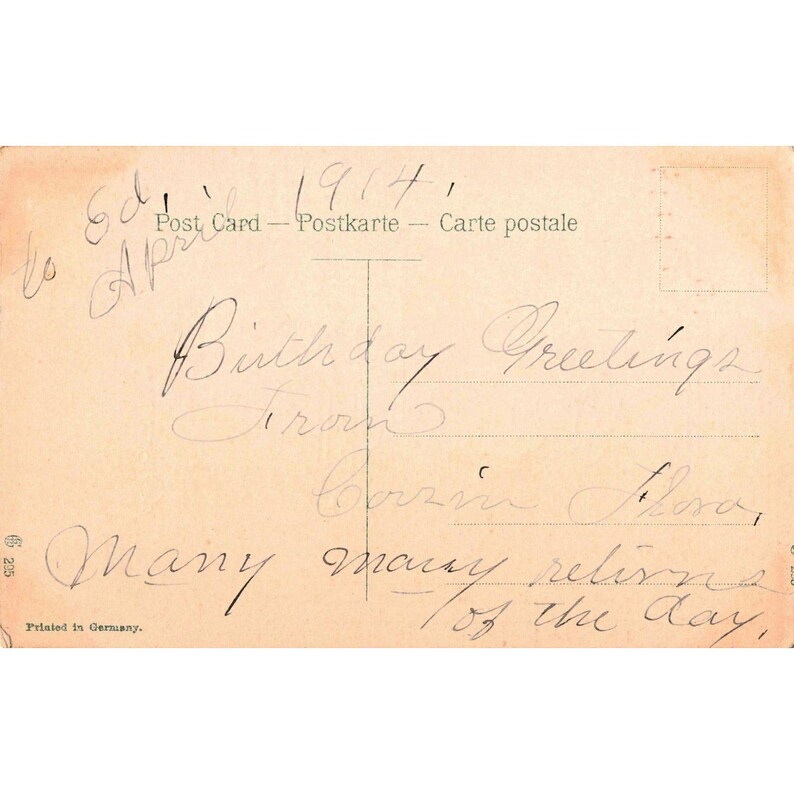 to Ed,
April 1914,
Post Card — Postkarte — Carte postale
Birthday Greetings
From
Cousin Flora,
Many many returns
of the day,
295
Printed in Germany.